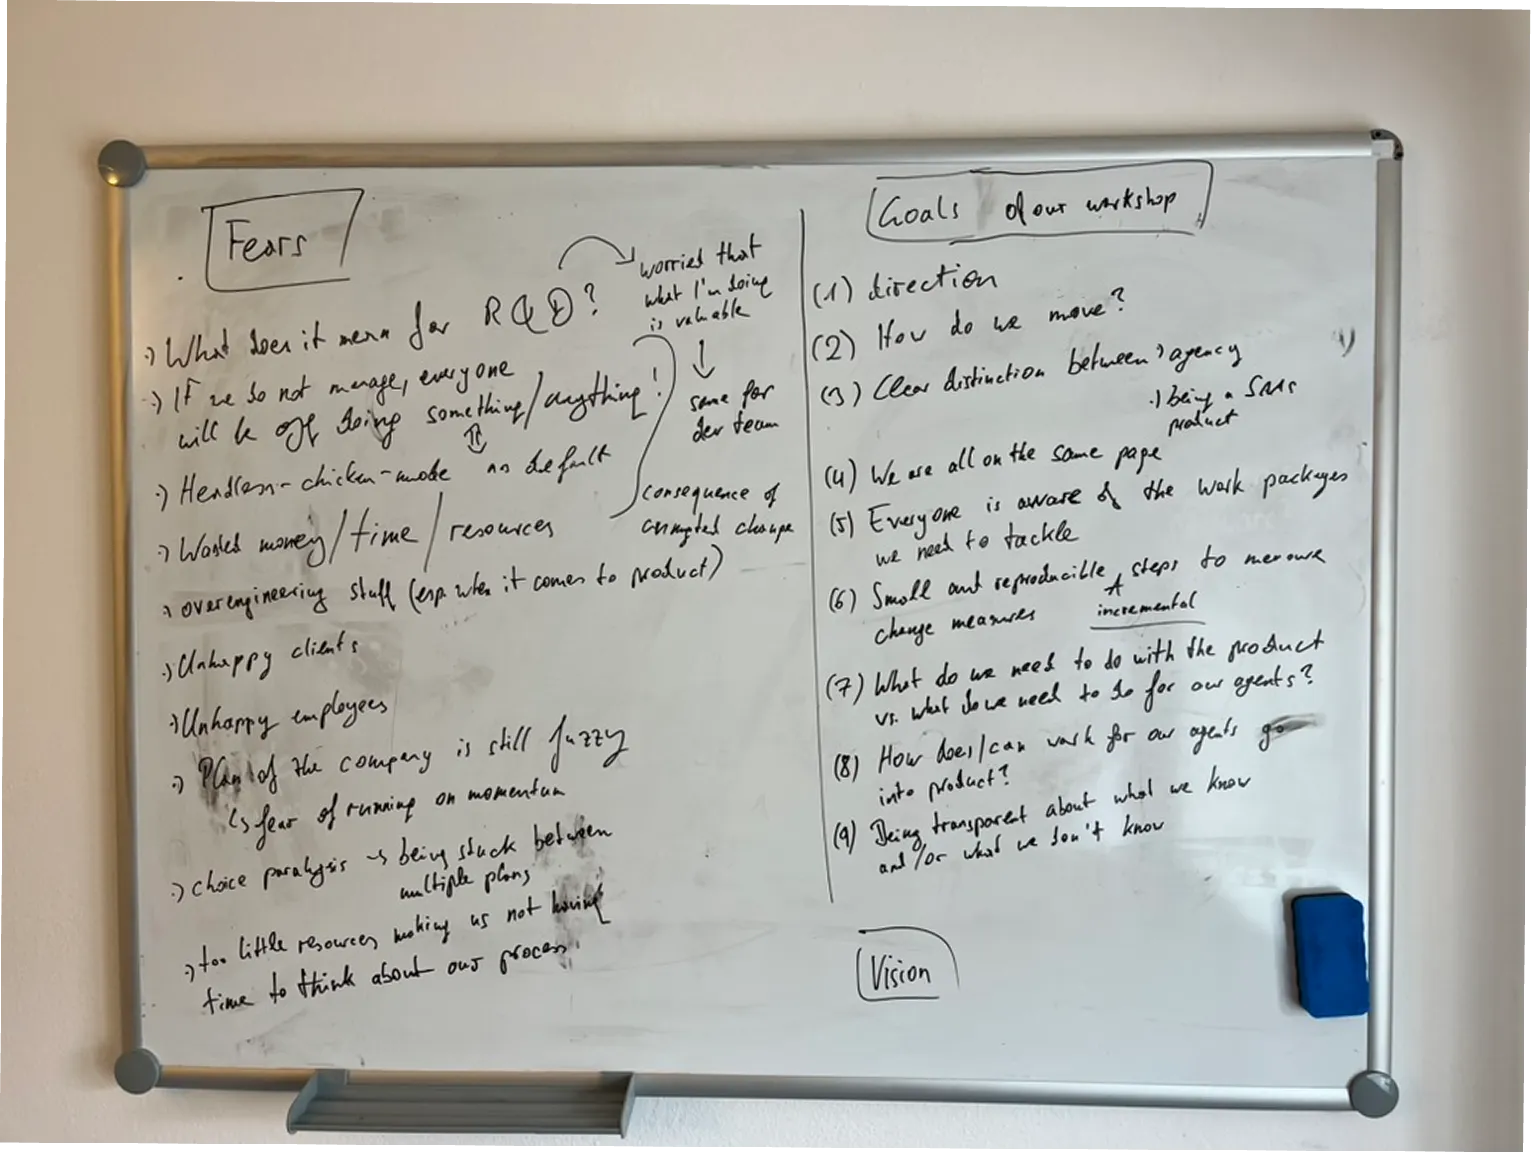 Fears
·) What does it mean for R&D?
worried that
what I'm doing
is valuable
same for
dev team
·) If we do not manage, everyone
will be off doing something/anything!
·) Headless-chicken-mode as default
·) Wasted money/time/resources
consequence of
change
·) overengineering stuff (esp. when it comes to product)
·) Unhappy clients
·) Unhappy employees
·) Plan of the company is still fuzzy
↳ fear of running on momentum
·) choice paralysis → being stuck between
multiple plans
·) too little resources making us not having
time to think about our process
Goals of our workshop
(1) direction
(2) How do we move?
(3) Clear distinction between ·) agency
·) being a SaaS
product
(4) We are all on the same page
(5) Everyone is aware of the work packages
we need to tackle
(6) Small and reproducible steps to measure
incremental
change measures
(7) What do we need to do with the product
vs. what do we need to do for our agents?
(8) How does/can work for our agents go
into product?
(9) Being transparent about what we know
and/or what we don't know
Vision